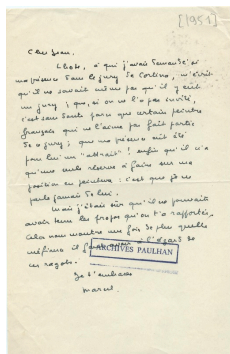 [1951]
Cher Jean.
Lhote, à qui j'avais demandé si
ma présence dans le jury de Cortina, m'écrit
qu'il ne savait même pas qu'il y eût
un jury ; que, si on ne l'a pas invité,
c'est sans doute parce que certains peintres
français qui ne l'aiment pas font partie
de ce jury ; que ma présence eût été
pour lui un "attrait" ! enfin qu'il n'a
qu'une seule réserve à faire sur ma
position en peinture : c'est que je ne
parle jamais de lui.
Mais j'étais sûr qu'il ne pouvait
avoir tenu les propos qu'on t'a rapportés.
Cela nous montre une fois de plus quelle
méfiance il faut avoir à l'égard de
ces ragots.
ARCHIVES PAULHAN
Je t'embrasse
Marcel.